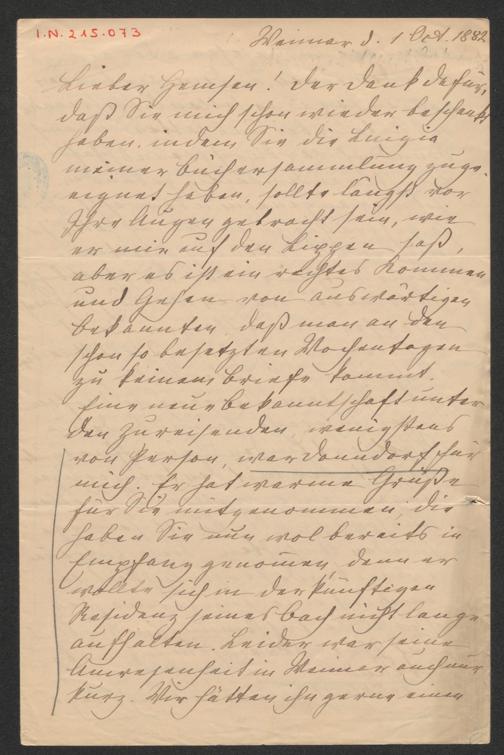 I.N. 215.073
Weimar d. 1 Oct. 1882
Lieber Hemsen! Der Dank dafür,
daß Sie mich schon wieder beschenkt
haben, indem Sie die Luigia
meiner Büchersammlung zuge-
eignet haben, sollte längst vor
Ihre Augen gebracht sein, wie
er mir auf den Lippen saß,
aber es ist ein rechtes Kommen
und Gehen von auswärtigen
Bekannten, daß man an den
schon so besetzten Wochentagen
zu keinem Briefe kommt.
Eine neue Bekanntschaft unter
den Zureisenden, wenigstens
von Person, war Donndorf für
mich. Er hat warme Grüße
für Sie mitgenommen, die
haben Sie nun wol bereits in
Empfang genommen, denn er
wollte sich in der künftigen
Residenz seines Bach nicht lange
aufhalten. Leider war seine
Anwesenheit in Weimar auch nur
kurz. Wir hätten ihn gerne einen